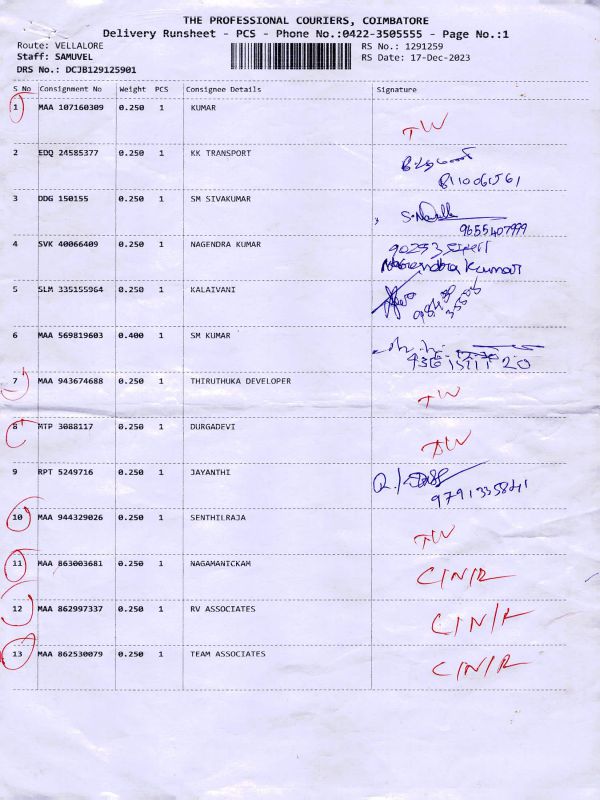 THE PROFESSIONAL COURIERS, COIMBATORE
Delivery Runsheet - PCS - Phone No.:0422-3505555 - Page No.:1
Route: VELLALORE RS No.: 1291259
Staff: SAMUVEL RS Date: 17-Dec-2023
DRS No.: DCJB129125901
S No Consignment No Weight PCS Consignee Details Signature
1 MAA 107160309 0.250 1 KUMAR
2 EDQ 24585377 0.250 1 KK TRANSPORT
3 DDG 150155 0.250 1 SM SIVAKUMAR
9655407999
4 SVK 40066409 0.250 1 NAGENDRA KUMAR
Nagendra Kumar
5 SLM 335155964 0.250 1 KALAIVANI
6 MAA 569819603 0.400 1 SM KUMAR
7 MAA 943674688 0.250 1 THIRUTHUKA DEVELOPER
8 MTP 3088117 0.250 1 DURGADEVI
9 RPT 5249716 0.250 1 JAYANTHI
9791335841
10 MAA 944329026 0.250 1 SENTHILRAJA
11 MAA 863003681 0.250 1 NAGAMANICKAM C/N/R
12 MAA 862997337 0.250 1 RV ASSOCIATES C/N/R
13 MAA 862530079 0.250 1 TEAM ASSOCIATES C/N/R